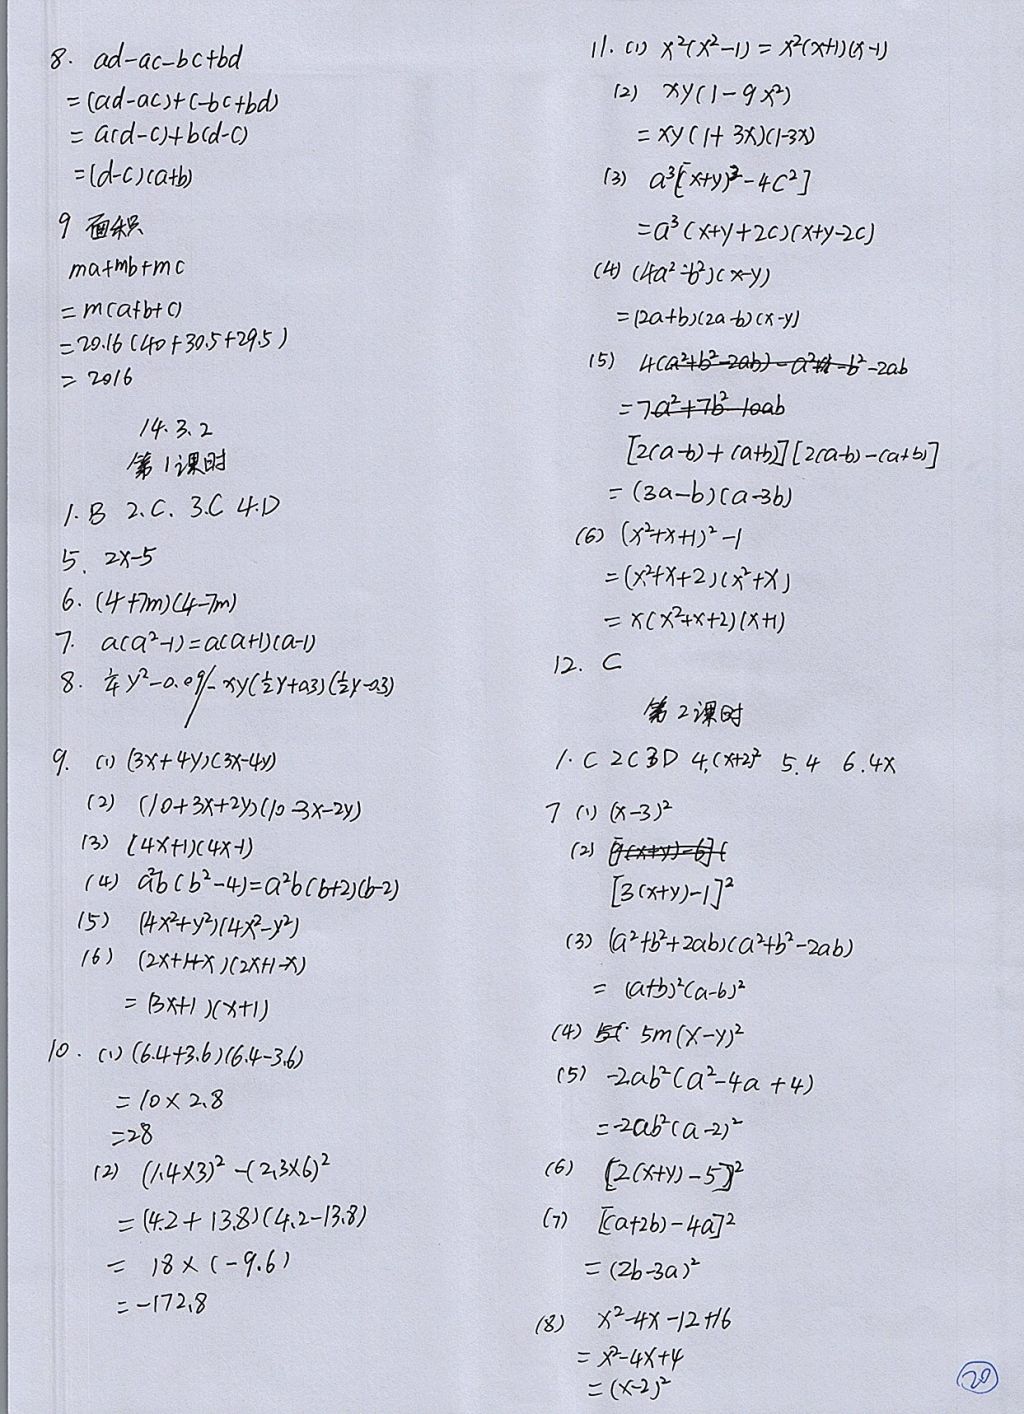 8. ad-ac-bc+bd
=(ad-ac)+(-bc+bd)
=a(d-c)+b(d-c)
=(d-c)(a+b)
9 面积
ma+mb+mc
=m(a+b+c)
=20.16(40+30.5+29.5)
=2016
14.3.2
第1课时
1.B 2.C. 3.C 4.D
5. 2x-5
6. (4+7m)(4-7m)
7. a(a²-1)=a(a+1)(a-1)
8. ¼y²-0.09/- xy(½y+0.3)(½y-0.3)
9. (1) (3x+4y)(3x-4y)
(2) (10+3x+2y)(10-3x-2y)
(3) (4x+1)(4x-1)
(4) a²b(b²-4)=a²b(b+2)(b-2)
(5) (4x²+y²)(4x²-y²)
(6) (2x+1+x)(2x+1-x)
=(3x+1)(x+1)
10. (1) (6.4+3.6)(6.4-3.6)
=10×2.8
=28
(2) (1.4×3)²-(2.3×6)²
=(4.2+13.8)(4.2-13.8)
= 18×(-9.6)
=-172.8
11. (1) x²(x²-1)=x²(x+1)(x-1)
(2) xy(1-9x²)
=xy(1+3x)(1-3x)
(3) a³[(x+y)²-4c²]
=a³(x+y+2c)(x+y-2c)
(4) (4a²-b²)(x-y)
=(2a+b)(2a-b)(x-y)
(5) 4(a²+b²-2ab)-a²-b²-2ab
=7a²+7b²-10ab
[2(a-b)+(a+b)][2(a-b)-(a+b)]
=(3a-b)(a-3b)
(6) (x²+x+1)²-1
=(x²+x+2)(x²+x)
=x(x²+x+2)(x+1)
12. C
第2课时
1.C 2C 3D 4.(x+2)² 5.4 6.4x
7 (1) (x-3)²
(2) [9(x+y)-6](
[3(x+y)-1]²
(3) (a²+b²+2ab)(a²+b²-2ab)
= (a+b)²(a-b)²
(4) 5m(x-y)²
(5) -2ab²(a²-4a+4)
=-2ab²(a-2)²
(6) [2(x+y)-5]²
(7) [(a+2b)-4a]²
=(2b-3a)²
(8) x²-4x-12+16
=x²-4x+4
=(x-2)²
20